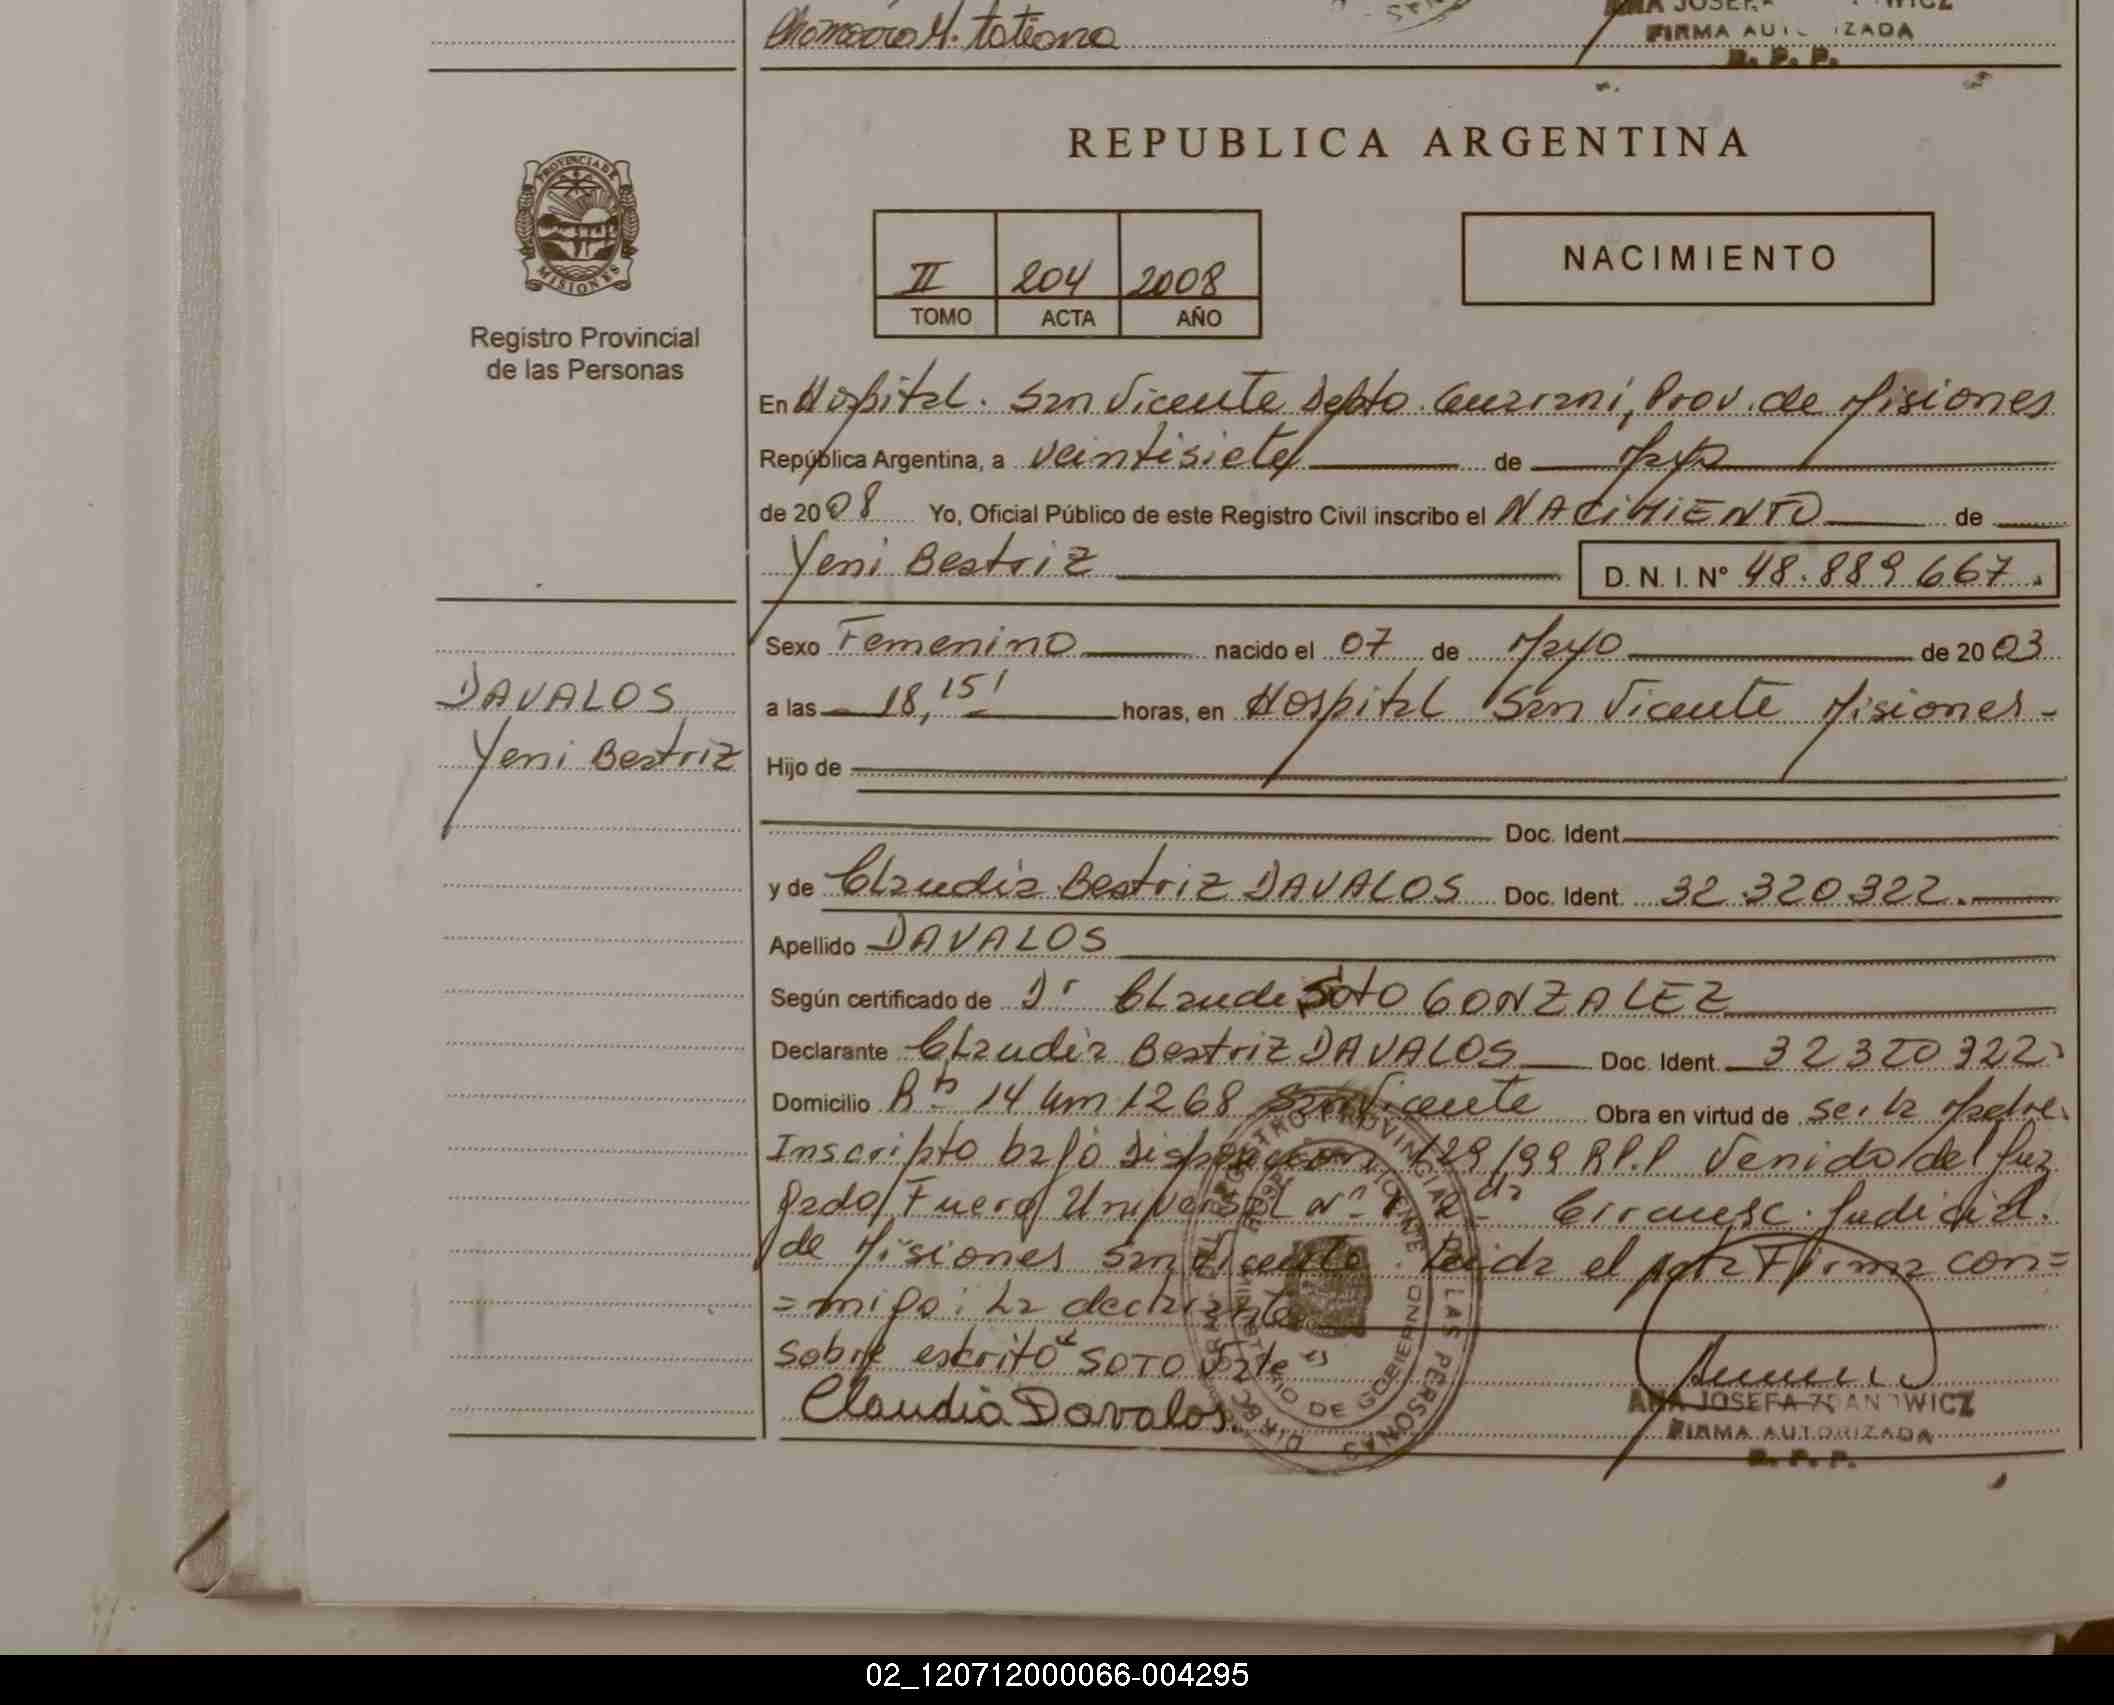 Chamorro M. Tatiana
FIRMA AUTORIZADA
R. P. P.
REPUBLICA ARGENTINA
PROVINCIA DE
MISIONES
II 204 2008
TOMO ACTA AÑO
NACIMIENTO
Registro Provincial
de las Personas
En Hospital. San Vicente Depto. Guarani, Prov. de Misiones
República Argentina, a veintisiete de Mayo
de 2008 Yo, Oficial Público de este Registro Civil inscribo el NACIMIENTO de
Yeni Beatriz D. N. I. Nº 48.889.667.
Sexo Femenino nacido el 07 de Mayo de 2003
DAVALOS
Yeni Beatriz
a las 18,15' horas, en Hospital San Vicente Misiones -
Hijo de
Doc. Ident.
y de Claudia Beatriz DAVALOS Doc. Ident. 32.320.322.
Apellido DAVALOS
Según certificado de Dr Claudi SOTO GONZALEZ
Declarante Claudia Beatriz DAVALOS Doc. Ident. 32320322
Domicilio Rta 14 Km 1268 San Vicente Obra en virtud de ser la Madre.
Inscripto bajo Disposicion 129/99 R.P.P Venido del Juz
gado Fuero Universal Nº 1 2da Circunsc. Judicial.
de Misiones San Vicente. Leida el acta Firma con=
=migo: La declarante
Sobre escrito "SOTO" Vale
Claudia Davalos.
REGISTRO PROVINCIAL DE LAS PERSONAS
MINISTERIO DE GOBIERNO
ANA JOSEFA
FIRMA AUTORIZADA
R. P. P.
02_120712000066-004295